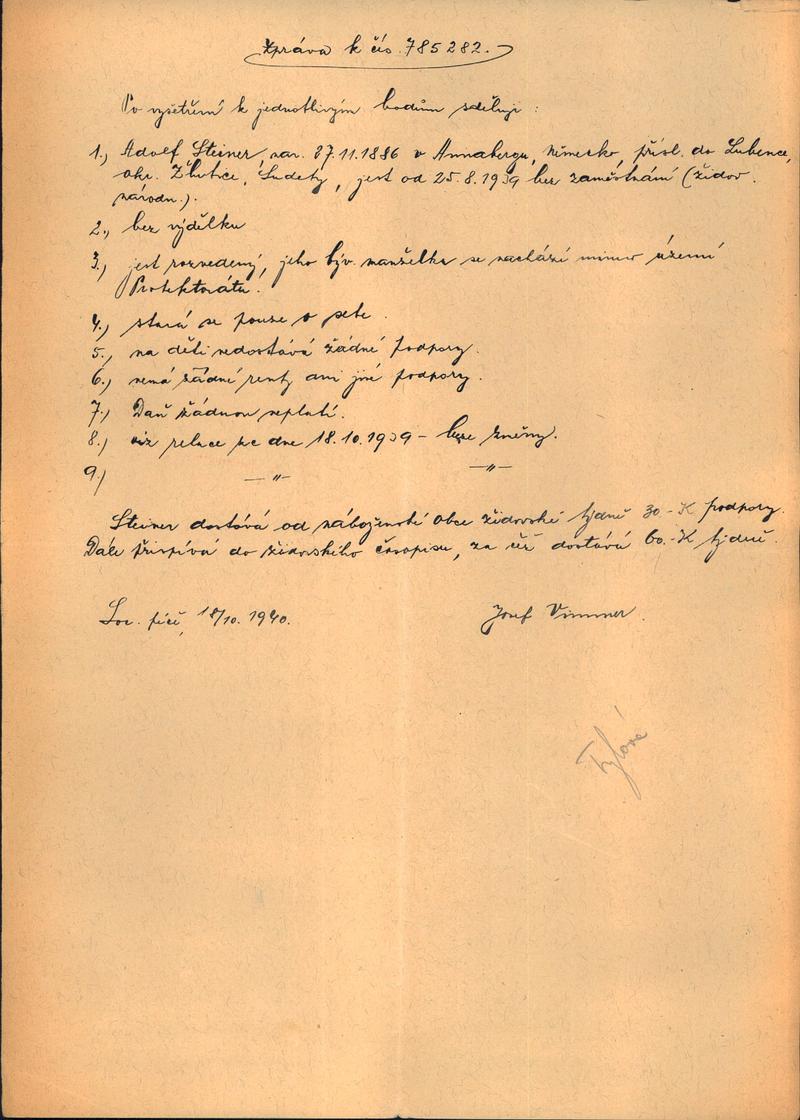 Zpráva k čís. 785282.
Po vyšetření k jednotlivým bodům sděluji :
1.) Adolf Steiner, nar. 27.11.1886 v Annabergu, Německo, přísl. do Lubence,
okr. Žlutice, Sudety, jest od 25.8.1939 bez zaměstnání (židov.
národn.).
2.) bez výdělku
3.) jest rozvedený, jeho býv. manželka se nachází mimo území
Protektorátu.
4.) stará se pouze o sebe.
5.) na děti nedostává žádné podpory.
6.) nemá žádné renty ani jiné podpory.
7.) Daň žádnou neplatí.
8.) viz relace ze dne 18.10.1939 - beze změny.
9.) —〃— —〃—
Steiner dostává od náboženské obce židovské týdně 30.-K podpory.
Dále přispívá do židovského časopisu, za což dostává 60.-K týdně.
18/10. 1940.
Josef Vimmer.
Tylová